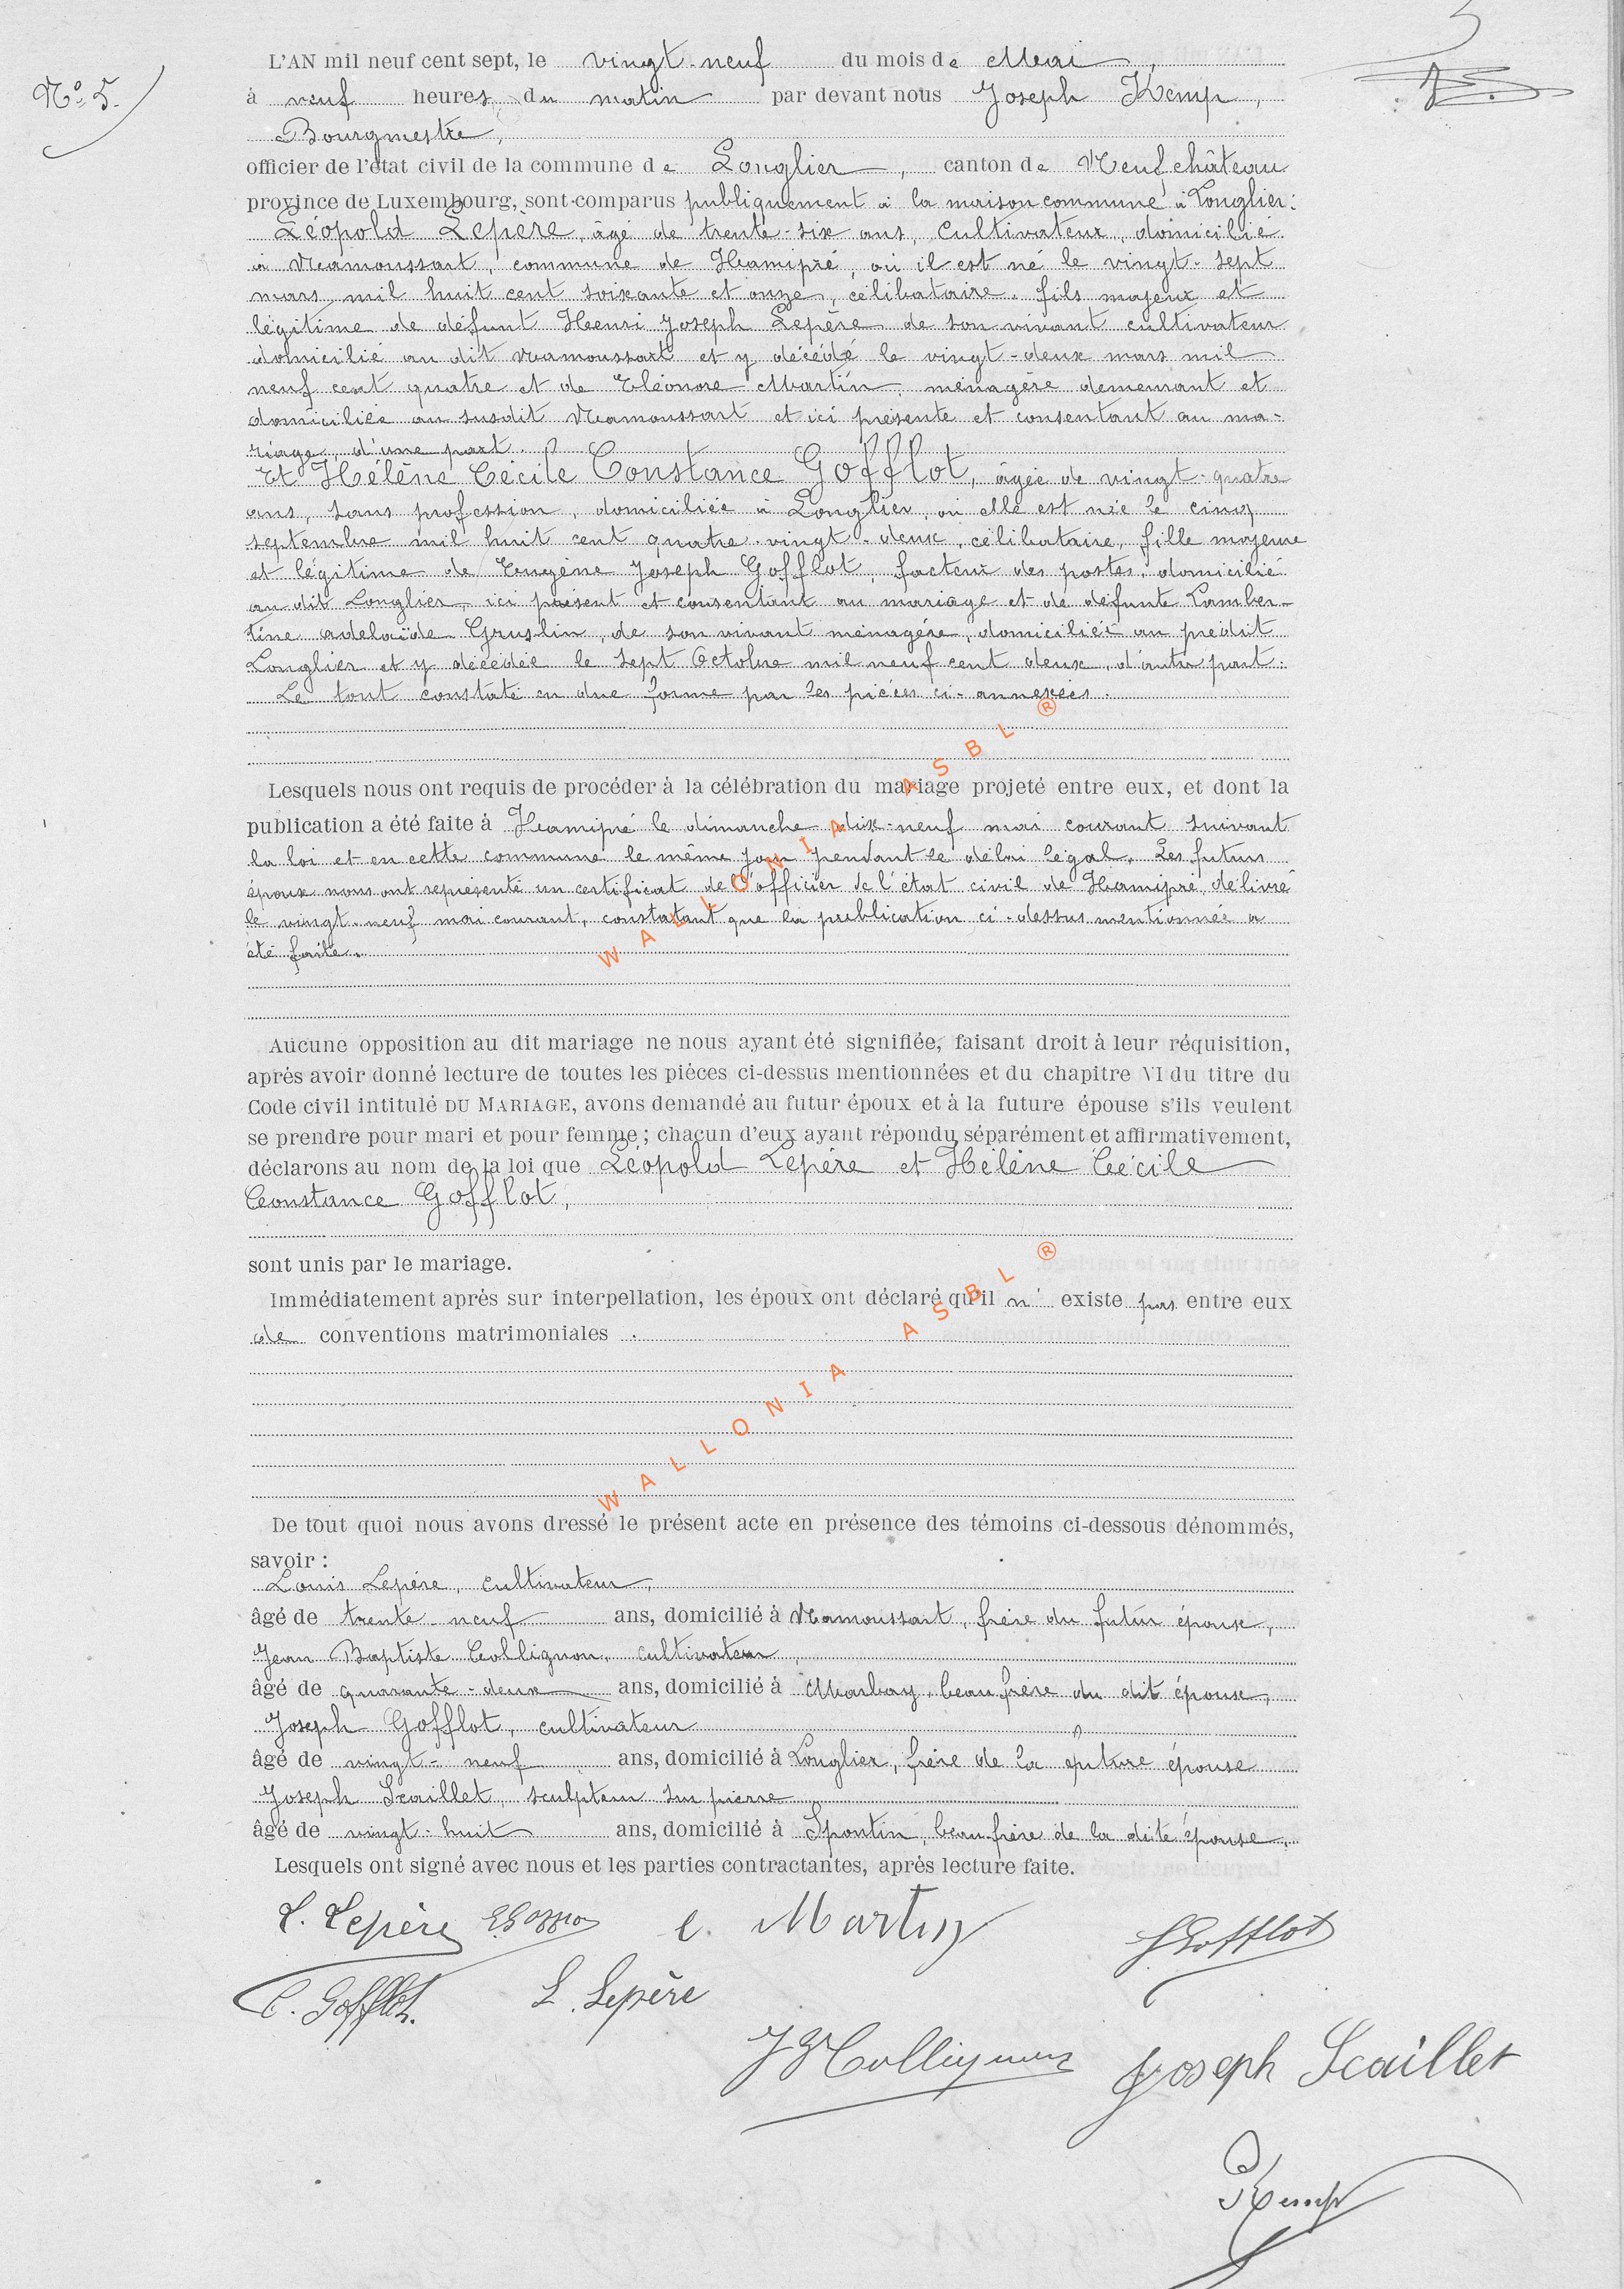 N° 5.
L'AN mil neuf cent sept, le vingt-neuf du mois de Mai,
à neuf heures du matin par devant nous Joseph Kemp,
Bourgmestre,
officier de l'état civil de la commune de Longlier, canton de Neufchâteau
province de Luxembourg, sont comparus publiquement à la maison commune à Longlier:
Léopold Lepère, âgé de trente-six ans, cultivateur, domicilié
à Namoussart, commune de Hamipré, où il est né le vingt-sept
mars mil huit cent soixante et onze, célibataire, fils majeur et
légitime de défunt Henri Joseph Lepère de son vivant cultivateur
domicilié au dit Namoussart et y décédé le vingt-deux mars mil
neuf cent quatre et de Eléonore Martin, ménagère demeurant et
domiciliée au susdit Namoussart et ici présente et consentant au ma-
riage, d'une part.
Et Hélène Cécile Constance Gofflot, âgée de vingt-quatre
ans, sans profession, domiciliée à Longlier, où elle est née le cinq
septembre mil huit cent quatre-vingt-deux, célibataire, fille majeure
et légitime de Eugène Joseph Gofflot, facteur des postes, domicilié
au dit Longlier, ici présent et consentant au mariage et de défunte Lamber-
tine Adelaïde Gruslin, de son vivant ménagère, domiciliée au prédit
Longlier et y décédée le sept Octobre mil neuf cent deux, d'autre part.
Le tout constaté en due forme par les pièces ci-annexées.
Lesquels nous ont requis de procéder à la célébration du mariage projeté entre eux, et dont la
publication a été faite à Hamipré le dimanche dix-neuf mai courant suivant
la loi et en cette commune le même jour pendant le délai légal. Les futurs
époux nous ont représenté un certificat de l'officier de l'état civil de Hamipré, délivré
le vingt-neuf mai courant, constatant que la publication ci-dessus mentionnée a
été faite.
WALLONIA ASBL ®
Aucune opposition au dit mariage ne nous ayant été signifiée, faisant droit à leur réquisition,
après avoir donné lecture de toutes les pièces ci-dessus mentionnées et du chapitre VI du titre du
Code civil intitulé DU MARIAGE, avons demandé au futur époux et à la future épouse s'ils veulent
se prendre pour mari et pour femme ; chacun d'eux ayant répondu séparément et affirmativement,
déclarons au nom de la loi que Léopold Lepère et Hélène Cécile
Constance Gofflot,
sont unis par le mariage.
Immédiatement après sur interpellation, les époux ont déclaré qu'il n' existe pas entre eux
de conventions matrimoniales .
WALLONIA ASBL ®
De tout quoi nous avons dressé le présent acte en présence des témoins ci-dessous dénommés,
savoir :
Louis Lepère, cultivateur,
âgé de trente-neuf ans, domicilié à Namoussart, frère du futur époux,
Jean Baptiste Collignon, cultivateur,
âgé de quarante-deux ans, domicilié à Marbay, beau frère du dit époux,
Joseph Gofflot, cultivateur
âgé de vingt-neuf ans, domicilié à Longlier, frère de la future épouse
Joseph Scaillet, sculpteur sur pierre
âgé de vingt-huit ans, domicilié à Spontin, beau-frère de la dite épouse.
Lesquels ont signé avec nous et les parties contractantes, après lecture faite.
L. Lepère e. Martin J Gofflot
C. Gofflot. L. Lepère
JB Collignon Joseph Scaillet
Kemp